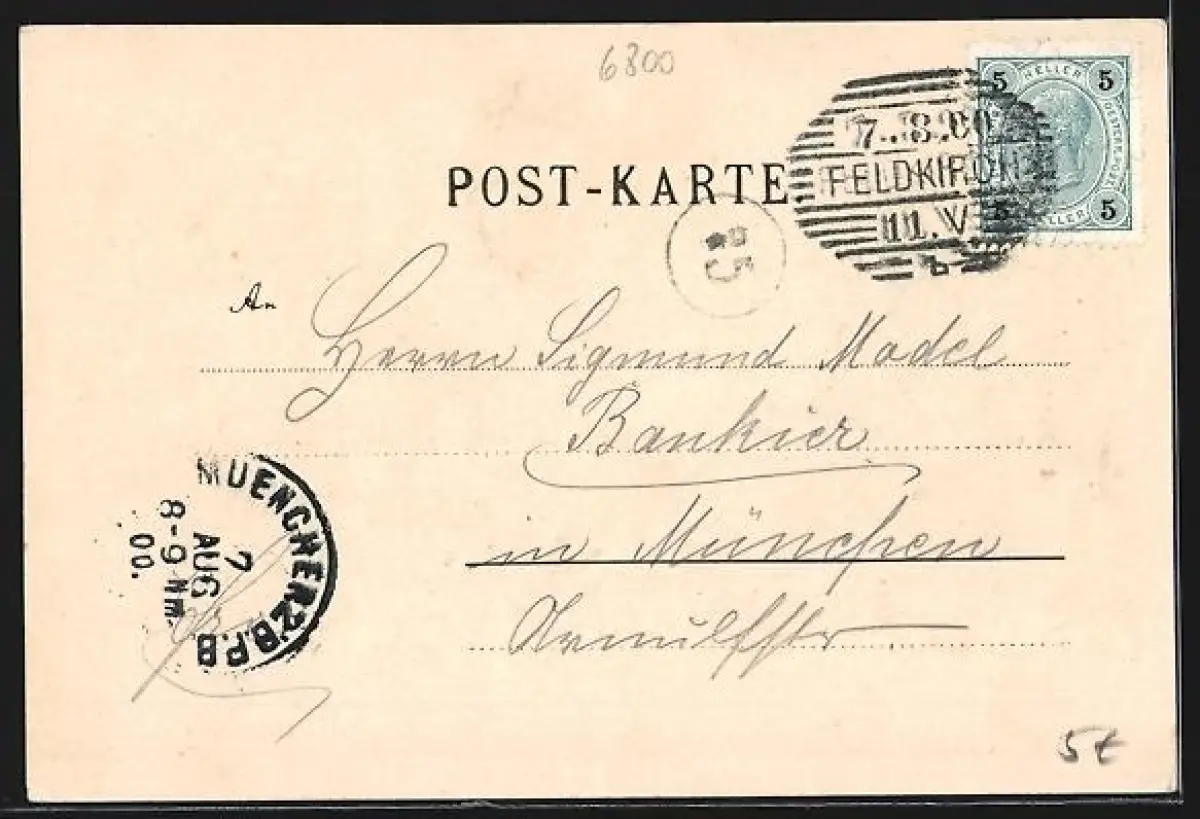 6800
5 HELLER 5
7..8.00
FELDKIRCH
11.V
b
5 HELLER 5
POST-KARTE
85
An
Herrn Sigmund Model
Bankier
in München
Arnulfstr
MUENCHEN 2 B.P.B
7
AUG
8-9 Nm.
00.
5€